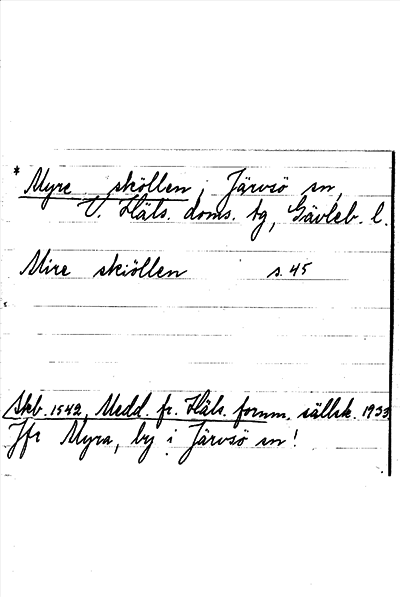 * Myre sköllen, Järvsö sn,
V. Häls. doms. tg, Gävleb. l.
Mire skiöllen s. 45
Skb. 1542, Medd. fr. Häls. fornm. sällsk. 1933
Jfr Myra, by i Järvsö sn!